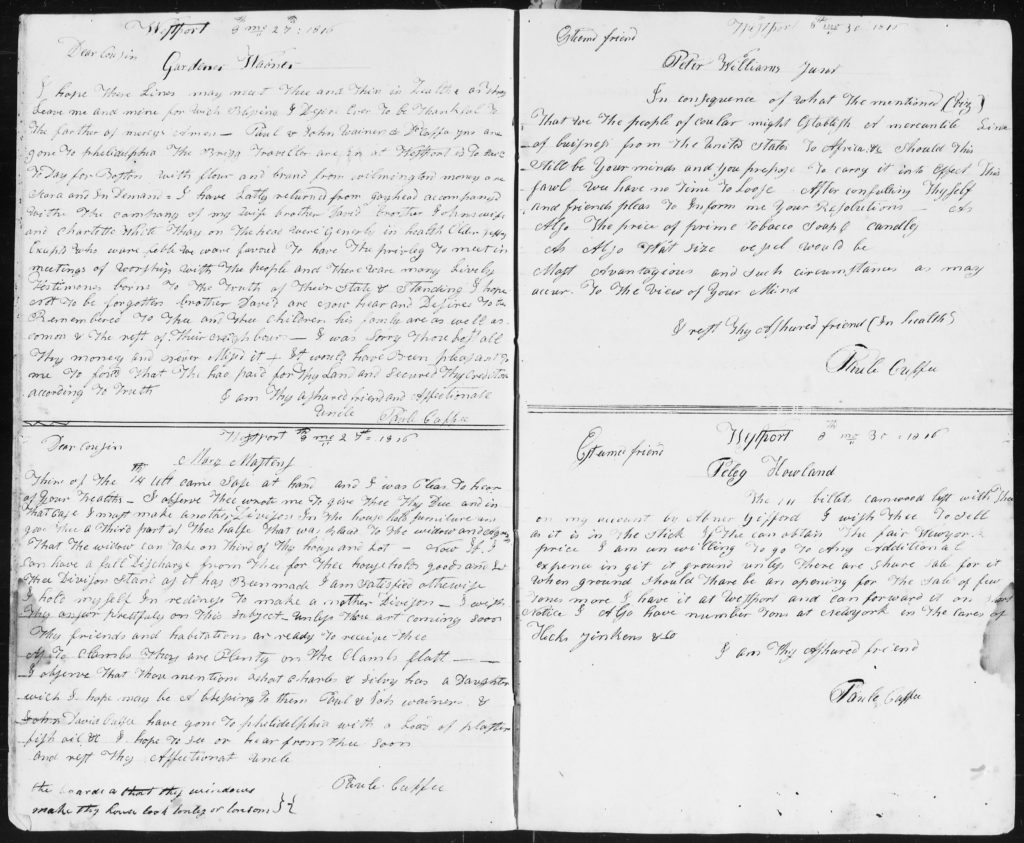 Westport 8th mo 27th 1816
Dear Cousin
Gardener Wainer
I hope These Lines may meet Thee and Thin in Health as They
Leave me and mine for wich Blesing I Desire Ever To be Thankful to
The farther of mercys Amen — Paul & John Wainer &
gone To pheliadelphia The Brigg Traveller are in at Westport is To
To Day for Boston with flour and brand from wilmington money are
Scarce and In Demand - I have Latly returned from gayhead acompaned
withe The company of my wife brother David brother Johns wife
and Charlotte White Thays on The head were Generly in health Elder Jeffery
who ware feble we ware favoured To have The privleg To meet in
meetings of Worship with The people and There ware many Lively
Testimones borne To The Truth of Their State & Standing I hope
not To be forgotten brother David are now hear and Desires To be
Remembered To Thee and Thee Children his family are as well as
comon & The rest of Their Neighbours — I was Sorry Thou lost all
Thy money and never Mised it — It would have Been pleasant to
me To found That The had paid for Thy Land and Secured Thy Creditors
according To Truth I am Thy ashured friend and Affectionate
uncle Paule Cuffee
Westport 8th mo 27th 1816
Dear Cousin
Mary Masters
Thin of The 14th ult came Safe at hand and I was Pleas To hear
of Your healths — I observe Thee wrote me To give Thee Thy Due and in
That Case I must make another Divison In The house hold furniture and
give Thee a Third part of Thee halfe That was Glaed To The widow and
That The widow can Take on Third of Thy house and Lot — Now If I
Can have a full Discharge from Thee for Thee household goods and Let
Thee Divison Stand as it has Bun made I am Satisfied otherwise
I hold myself In rediness To make a nother Divison — I wish
Thy ansur Spedfuly on This Subject — unless Thou art coming Soon
Thy friends and habitations ar ready To receive Thee
As To Clambs They are Plenty on The Clamb flatt — —
I observe That Thou mentione That Charls & Silvy has a Daughter
wich I hope may be A blessing to Them Paul & Joh wainers &
John David Cuffee have gone To pheliadelphia with a Load of plaster
fish oil &c I hope To See or hear from thee Soon
and rest Thy Affectionat Uncle
Paule Cuffee
the that thy windows
make thy house look
Westport 8th mo 30 1816
Esteemd friend
Peter Williams Junr
In consequence of what The mentioned (viz)
That We The people of Coular might Establish A mercantile Line
of buisness from The united States To Africa &c Should This
Still be Your minds and you prepose To carry it into Effect This
fawl We have no Time To Loose After consulting Thyself
and friends pleas To Inform me Your Resolutions — As
Also The price of prime Tobacco Soap & candles
As Also What Size vessel would be
Most Advantagious and Such circumstances as may
accur To The view of Your Mind
I rest Thy Ashured friend (In health)
Paule Cuffee
Westport 8th mo 30 1816
Esteemed friend
Peleg Howland
The 111 billets camwood left with Thee
on my account by Abner Gifford I wish Thee To Sell
as it is in The Stick If The can obtain The fair Newyork
price I am unwilling To go To Any Additional
Expence in git it ground unless There are Shure Sale for it
When ground Should Thare be an opening for The Sale of few
Tones more I have it at Westport and can forward it on Short
Notice I Also have number Tons at Newyork in The Cares of
Hicks Jinkens & Co
I am Thy Ashured friend
Paule Cuffee